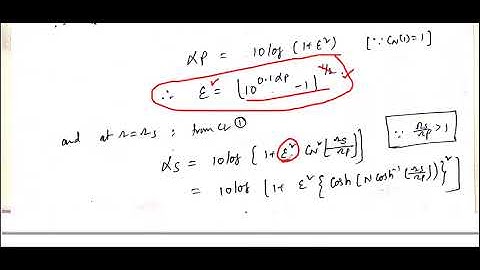 αp = 10 log (1+ε²) [∵ C_N(1) = 1]
∴ ε = [10^{0.1αp} - 1]^{1/2}
and at Ω = Ωs ; from eq ①
αs = 10 log [1 + ε² C_N² [Ωs/Ωp]] ∵ Ωs/Ωp > 1
= 10 log [1 + ε² {Cosh (N cosh⁻¹ (Ωs/Ωp))}²]